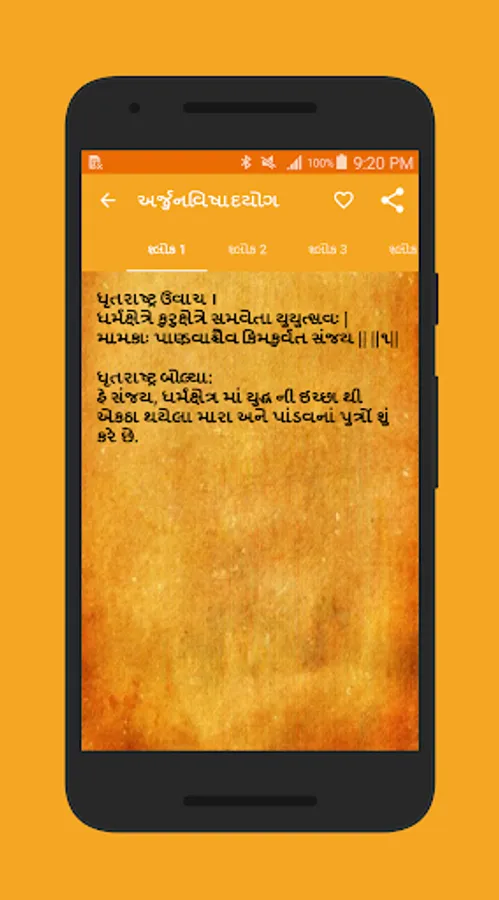 100% 9:20 PM
અર્જુનવિષાદયોગ
શ્લોક 1 શ્લોક 2 શ્લોક 3 શ્લોક
ધૃતરાષ્ટ્ર ઉવાચ ।
ધર્મક્ષેત્રે કુરુક્ષેત્રે સમવેતા યુયુત્સવઃ |
મામકાઃ પાણ્ડવાશ્ચૈવ કિમકુર્વત સંજય || ||૧||
ધૃતરાષ્ટ્ર બોલ્યા:
હે સંજય, ધર્મક્ષેત્ર માં યુદ્ધ ની ઇચ્છા થી
એકઠા થયેલા મારા અને પાંડવનાં પુત્રોં શું
કરે છે.